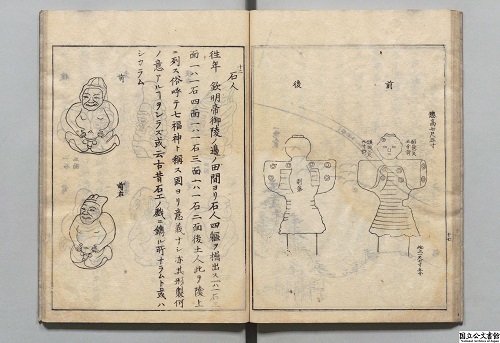 前
後
總高七尺五寸
剥落
石人
往年 欽明帝御陵ノ邊ノ田間ヨリ石人四軀ヲ掘出ス一ハ一石
面一ハ一石四面一ハ一石三面一ハ一石二面後土人此ヲ陵上
ニ列ス俗呼テ七福神ト稱ス固ヨリ意義ナシ亦其形製何
ノ意アルヿヲシラズ或云古昔石工ノ戯ニ鐫ル所ナラムト或ハ
シカラム
前
国立公文書館
National Archives of Japan